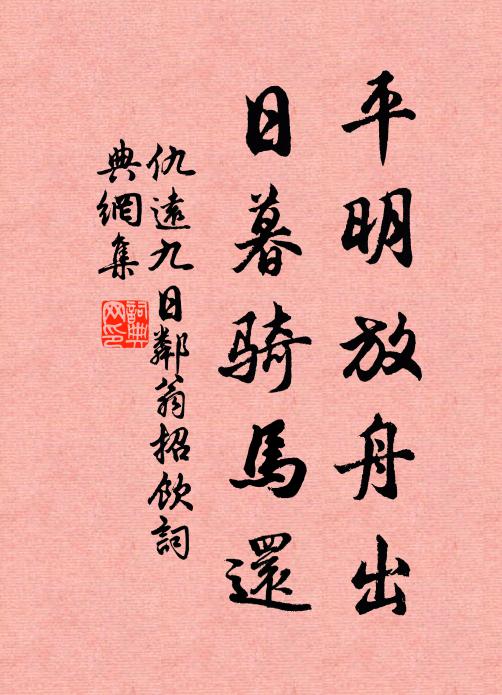 平明放舟出
日暮骑馬還
仇遠九日鄰翁招飲詞
典網集
詞典网印